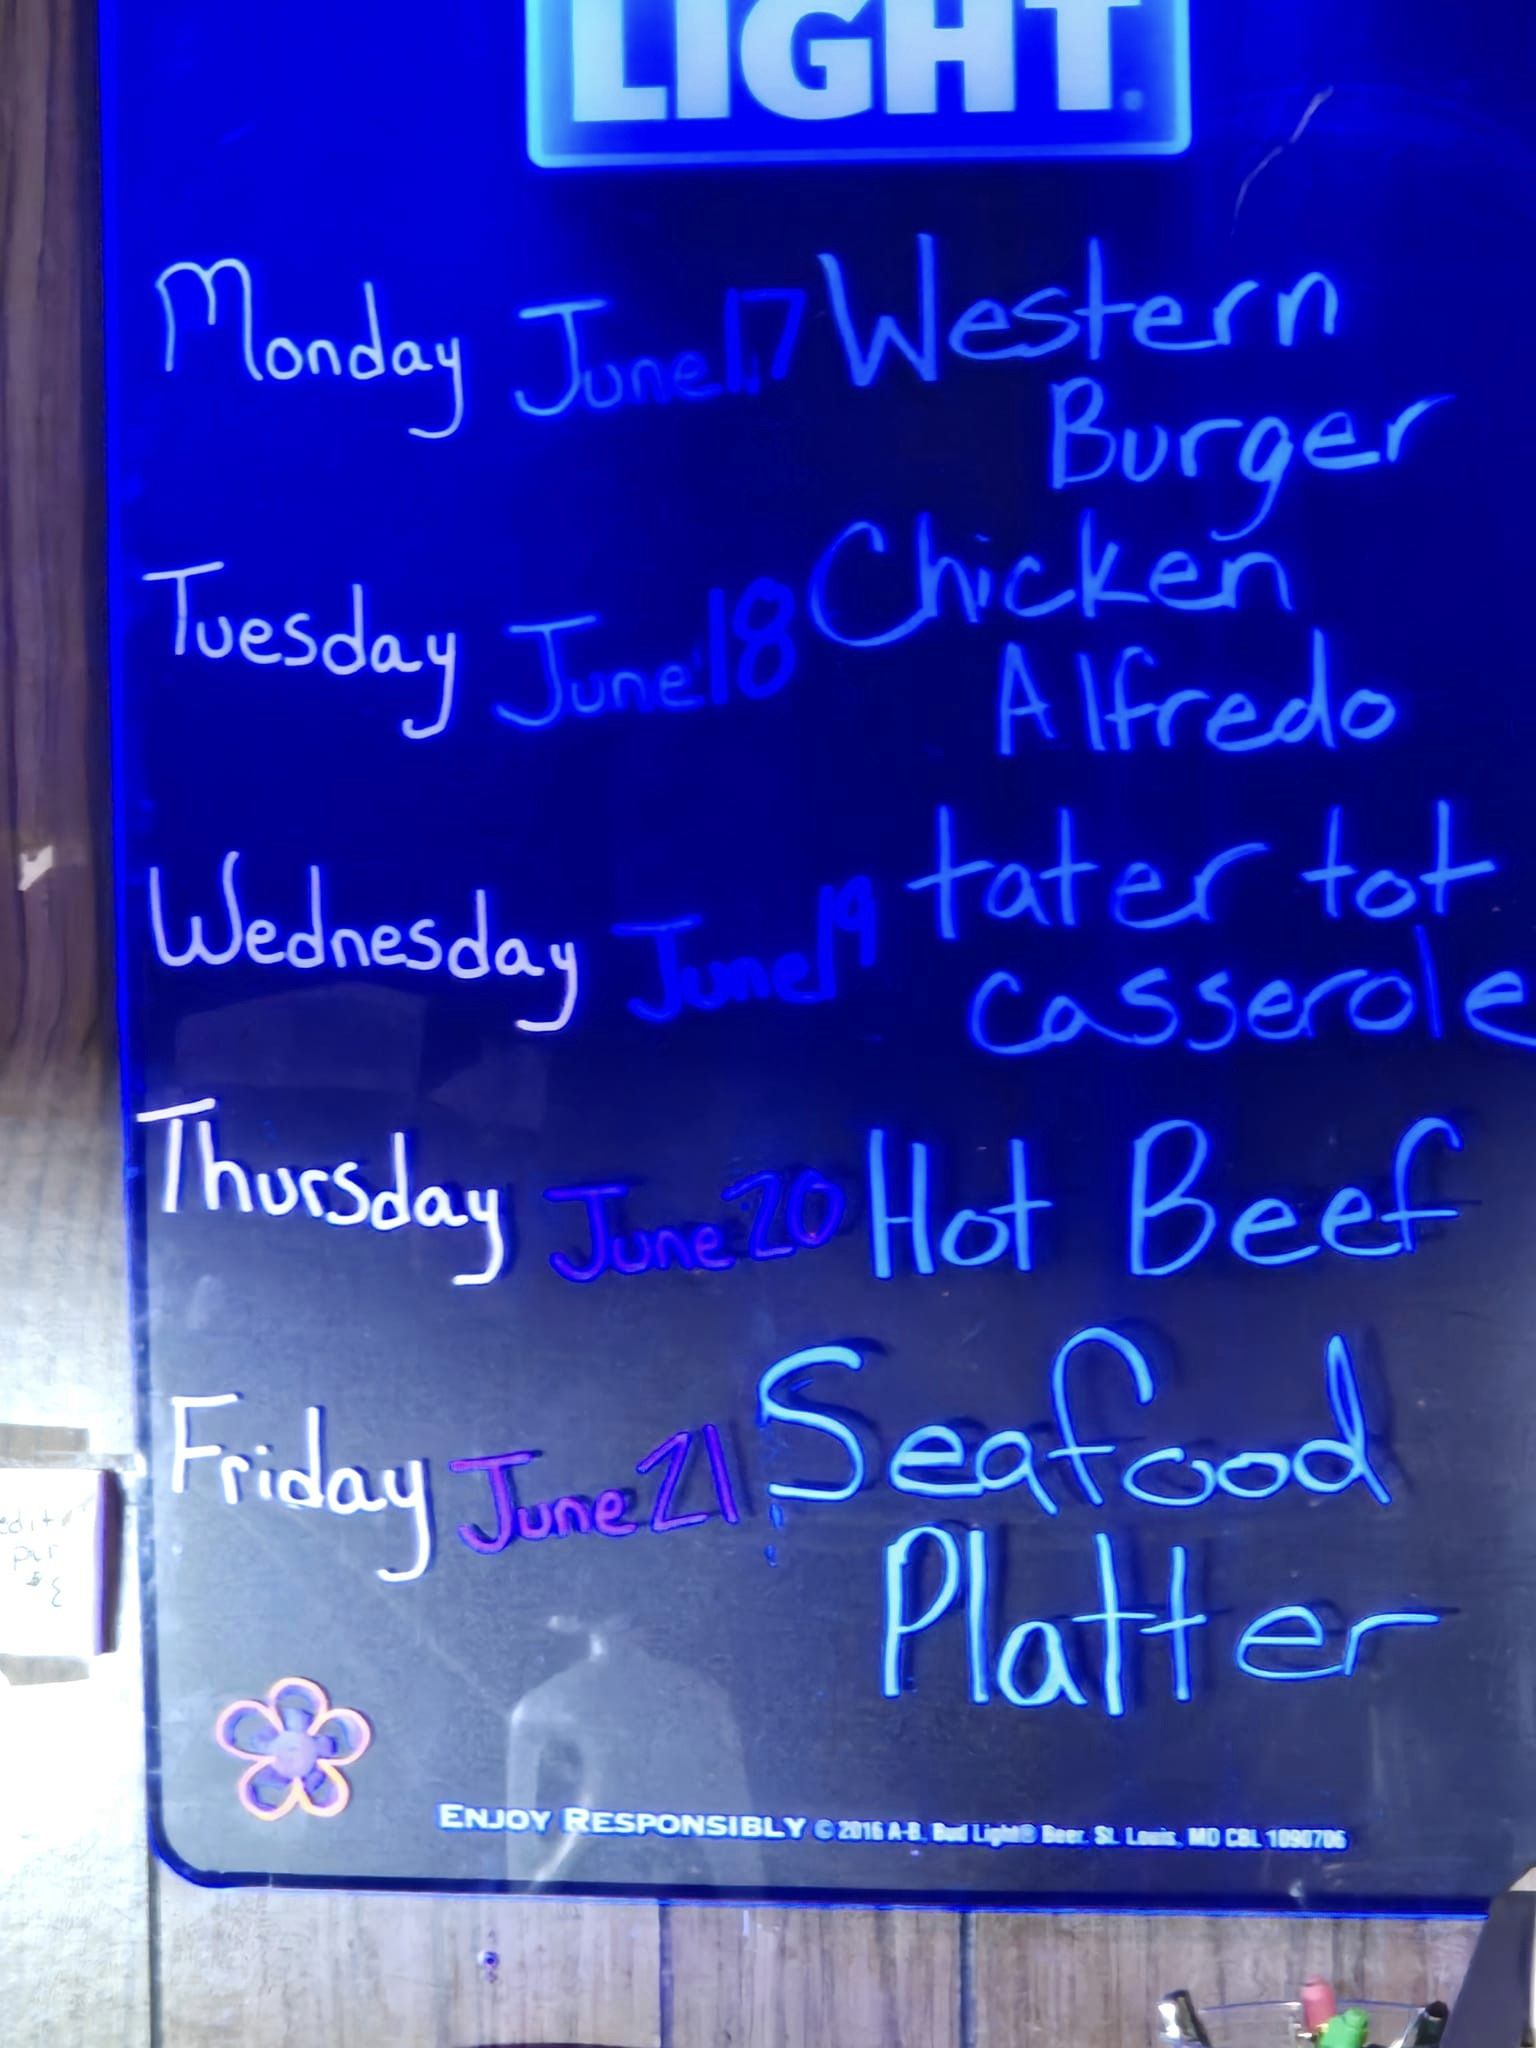 LIGHT
Monday June 17 Western
Burger
Tuesday June 18 Chicken
Alfredo
Wednesday June 19 tater tot
casserole
Thursday June 20 Hot Beef
Friday June 21 Seafood
Platter
ENJOY RESPONSIBLY © 2016 A-B, Bud Light® Beer, St. Louis, MO CBL 1090706